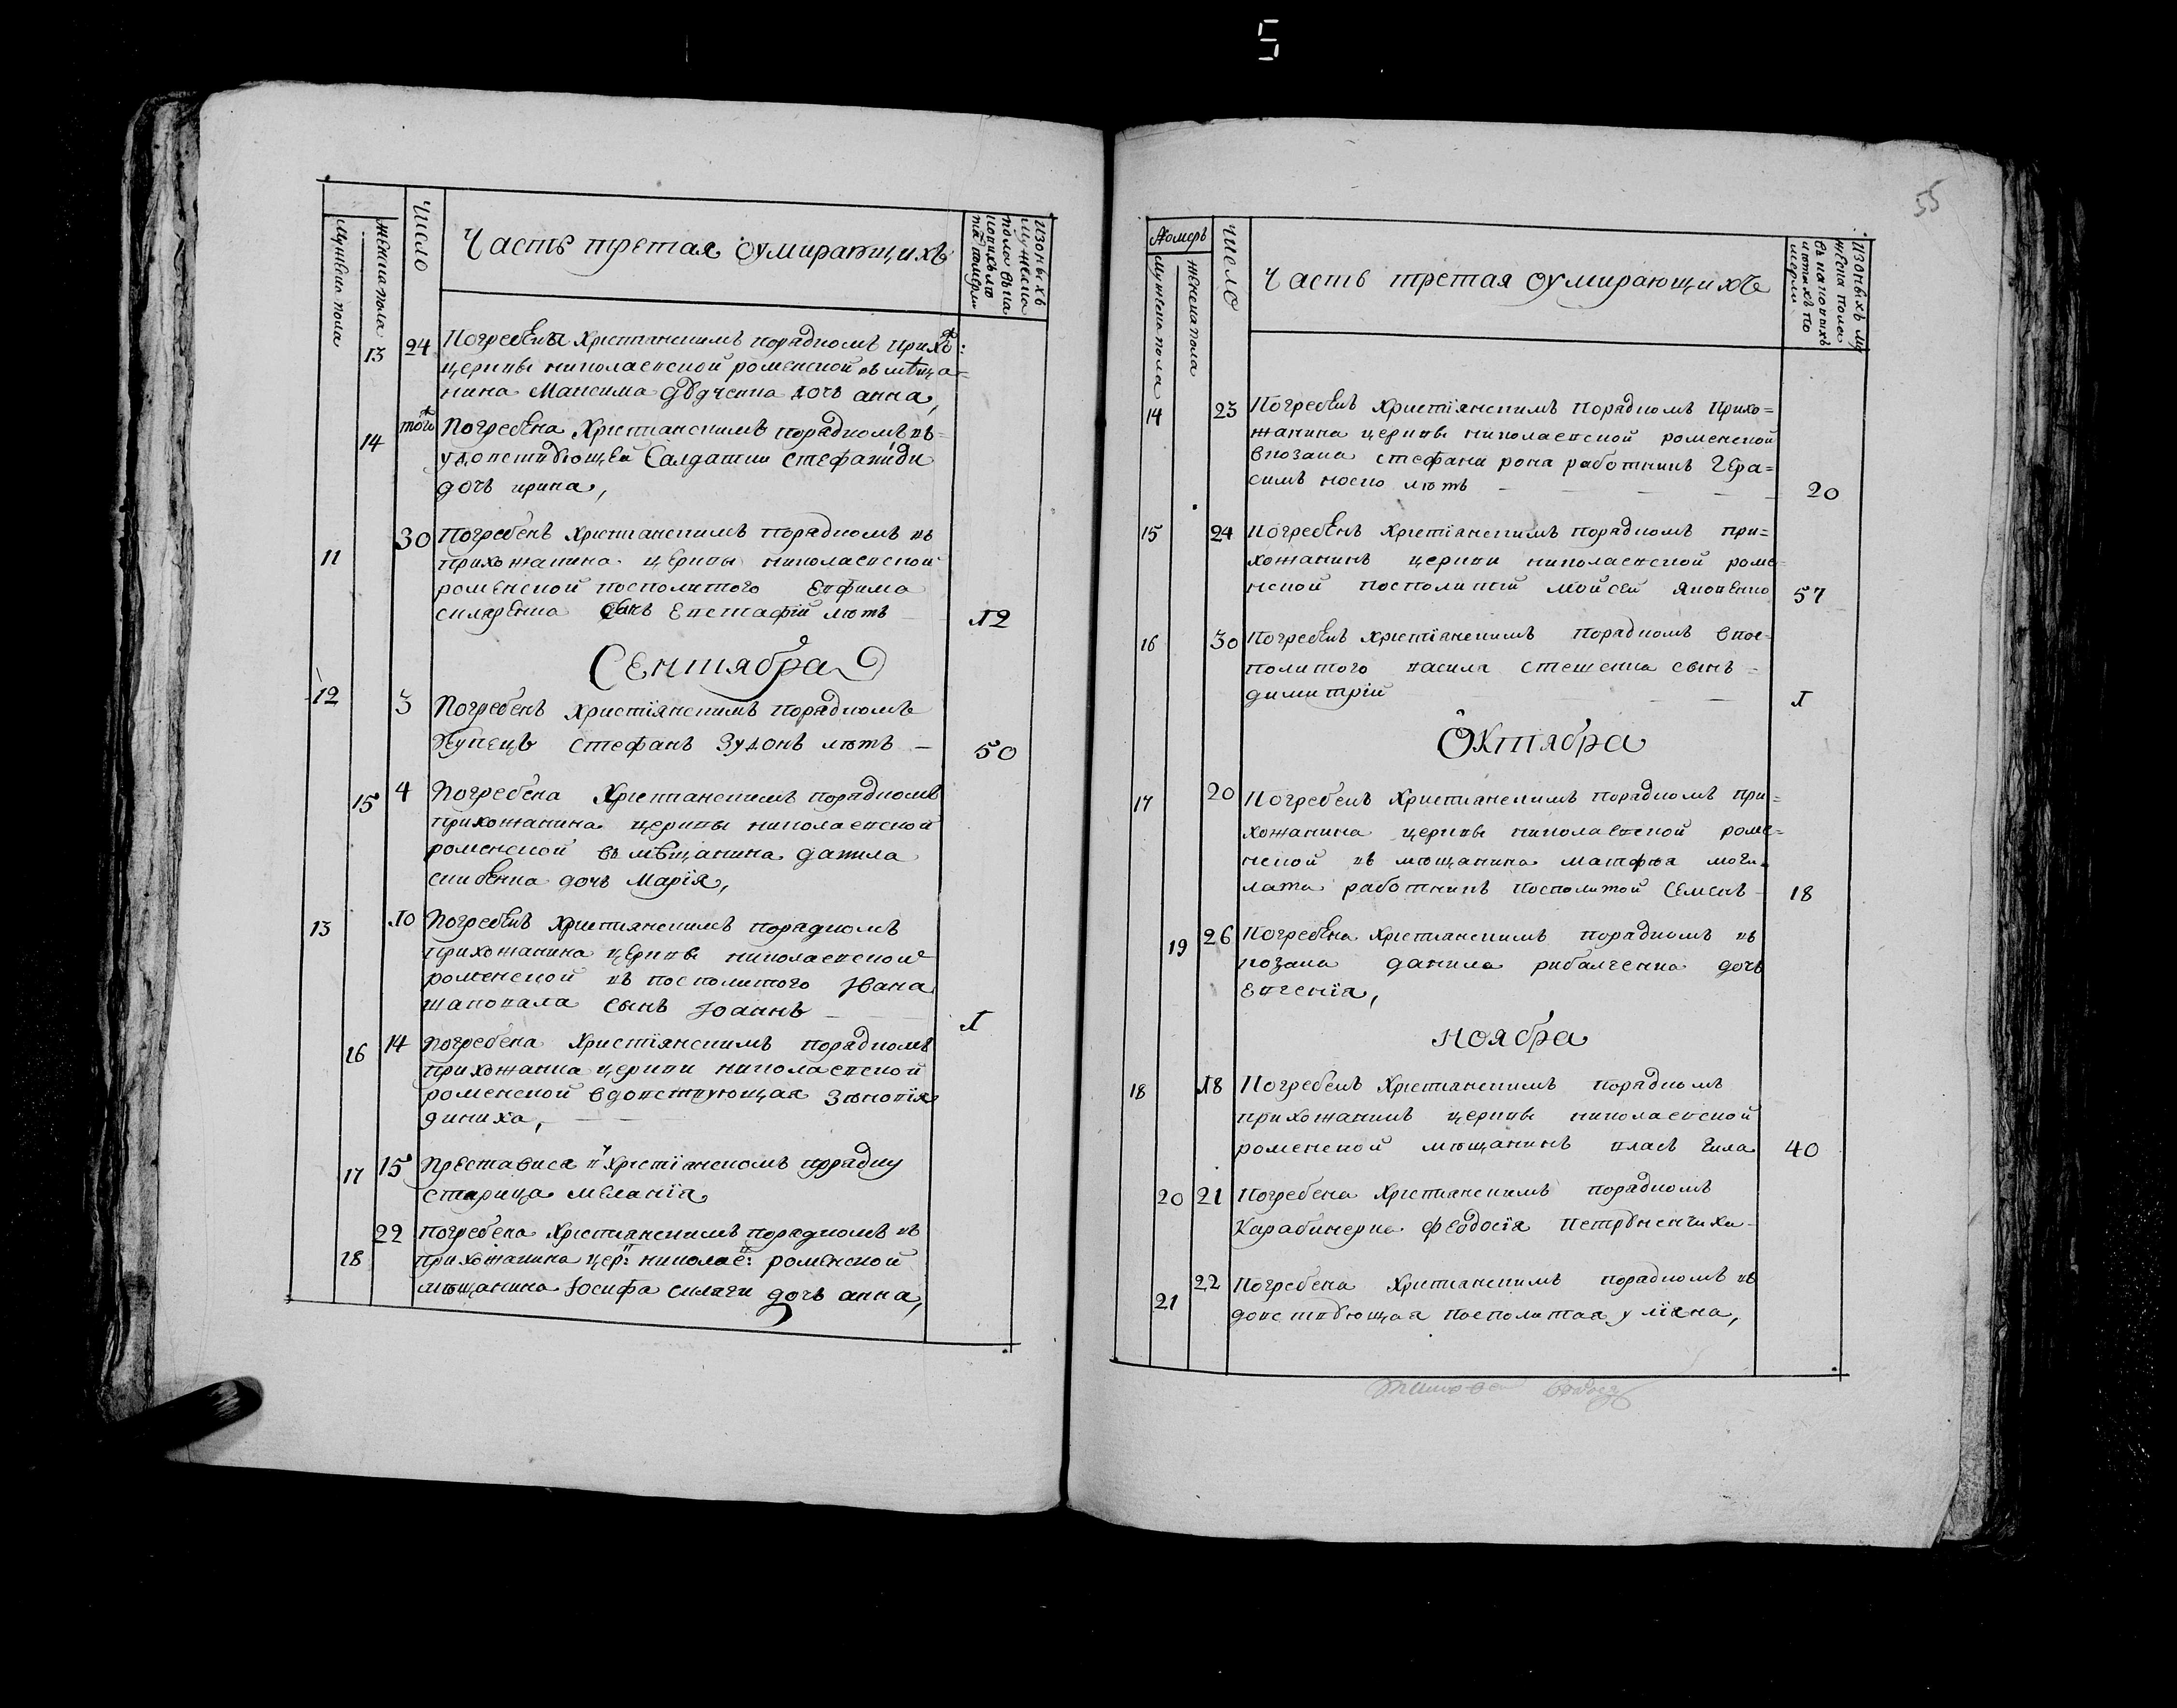 5
Число
женска пола
мужеско пола
Часть третая оумирающихъ
13 24 Погребена Христианскимъ порядкомъ
церкви николаевской роменской въ мѣща=
нина Максима дочь анна,
14 того Погребена Христианскимъ порядкомъ въ=
удовствующей Салдатки Стефаниди
дочь ирина,
11 30 Погребенъ Христианскимъ порядкомъ въ
прихожанина церкви николаевской
роменской посполитого Евфима
скляренка сынъ Евстафій лѣтъ 12
Сентября
12 3 Погребенъ Христіянскимъ порядкомъ
Купецъ Стефанъ Зудокъ лѣтъ — 50
15 4 Погребена Христианскимъ порядкомъ
прихожанина церкви николаевской
роменской въ мѣщанина данила
дочь Марія,
13 10 Погребенъ Християнскимъ порядкомъ
прихожанина церкви николаевской
роменской въ посполитого Ивана
шаповала сынъ Іоаннъ — 1
16 14 Погребена Христіянскимъ порядкомъ
прихожанка церкви николаевской
роменской вдовствующая Зѣновія
диниха,
17 15 Преставися в Христіанскомъ порядку
старица Меланія
18 22 Погребена Христианскимъ порядкомъ въ
прихожанина цер: николаев: роменской
мѣщанина Іосифа дочь анна,
55
Номеръ
Число
мужеско пола
женска пола
Часть третая оумирающихъ
14 23 Погребенъ Христіянскимъ Порядкомъ Прихо=
жанина церкви николаевской роменской
вкозака стефана рока работникъ Гера=
симъ носко лѣтъ — 20
15 24 Погребенъ Христіанскимъ порядкомъ при=
хожанинъ церкви николаевской роме=
нской посполитій Мойсей Яковенко 57
16 30 Погребенъ Христіанскимъ порядкомъ впос=
политого василя стешенка сынъ =
димитрій — 1
Октября
17 20 Погребенъ Христианскимъ порядкомъ при=
хожанина церкви николаевской роме=
нской въ мѣщанина матфѣя моги=
лати работникъ посполитой Семенъ 18
19 26 Погребена Христианскимъ порядкомъ въ
козака данила рибалченка дочь
Евгенія,
ноября
18 18 Погребенъ Христианскимъ порядкомъ
прихожанинъ церкви николаевской
роменской мѣщанинъ власъ Гила 40
20 21 Погребена Христианскимъ порядкомъ
Карабинерка феодосія
21 22 Погребена Христианскимъ порядкомъ въ
довствующая посполитая уліяна,